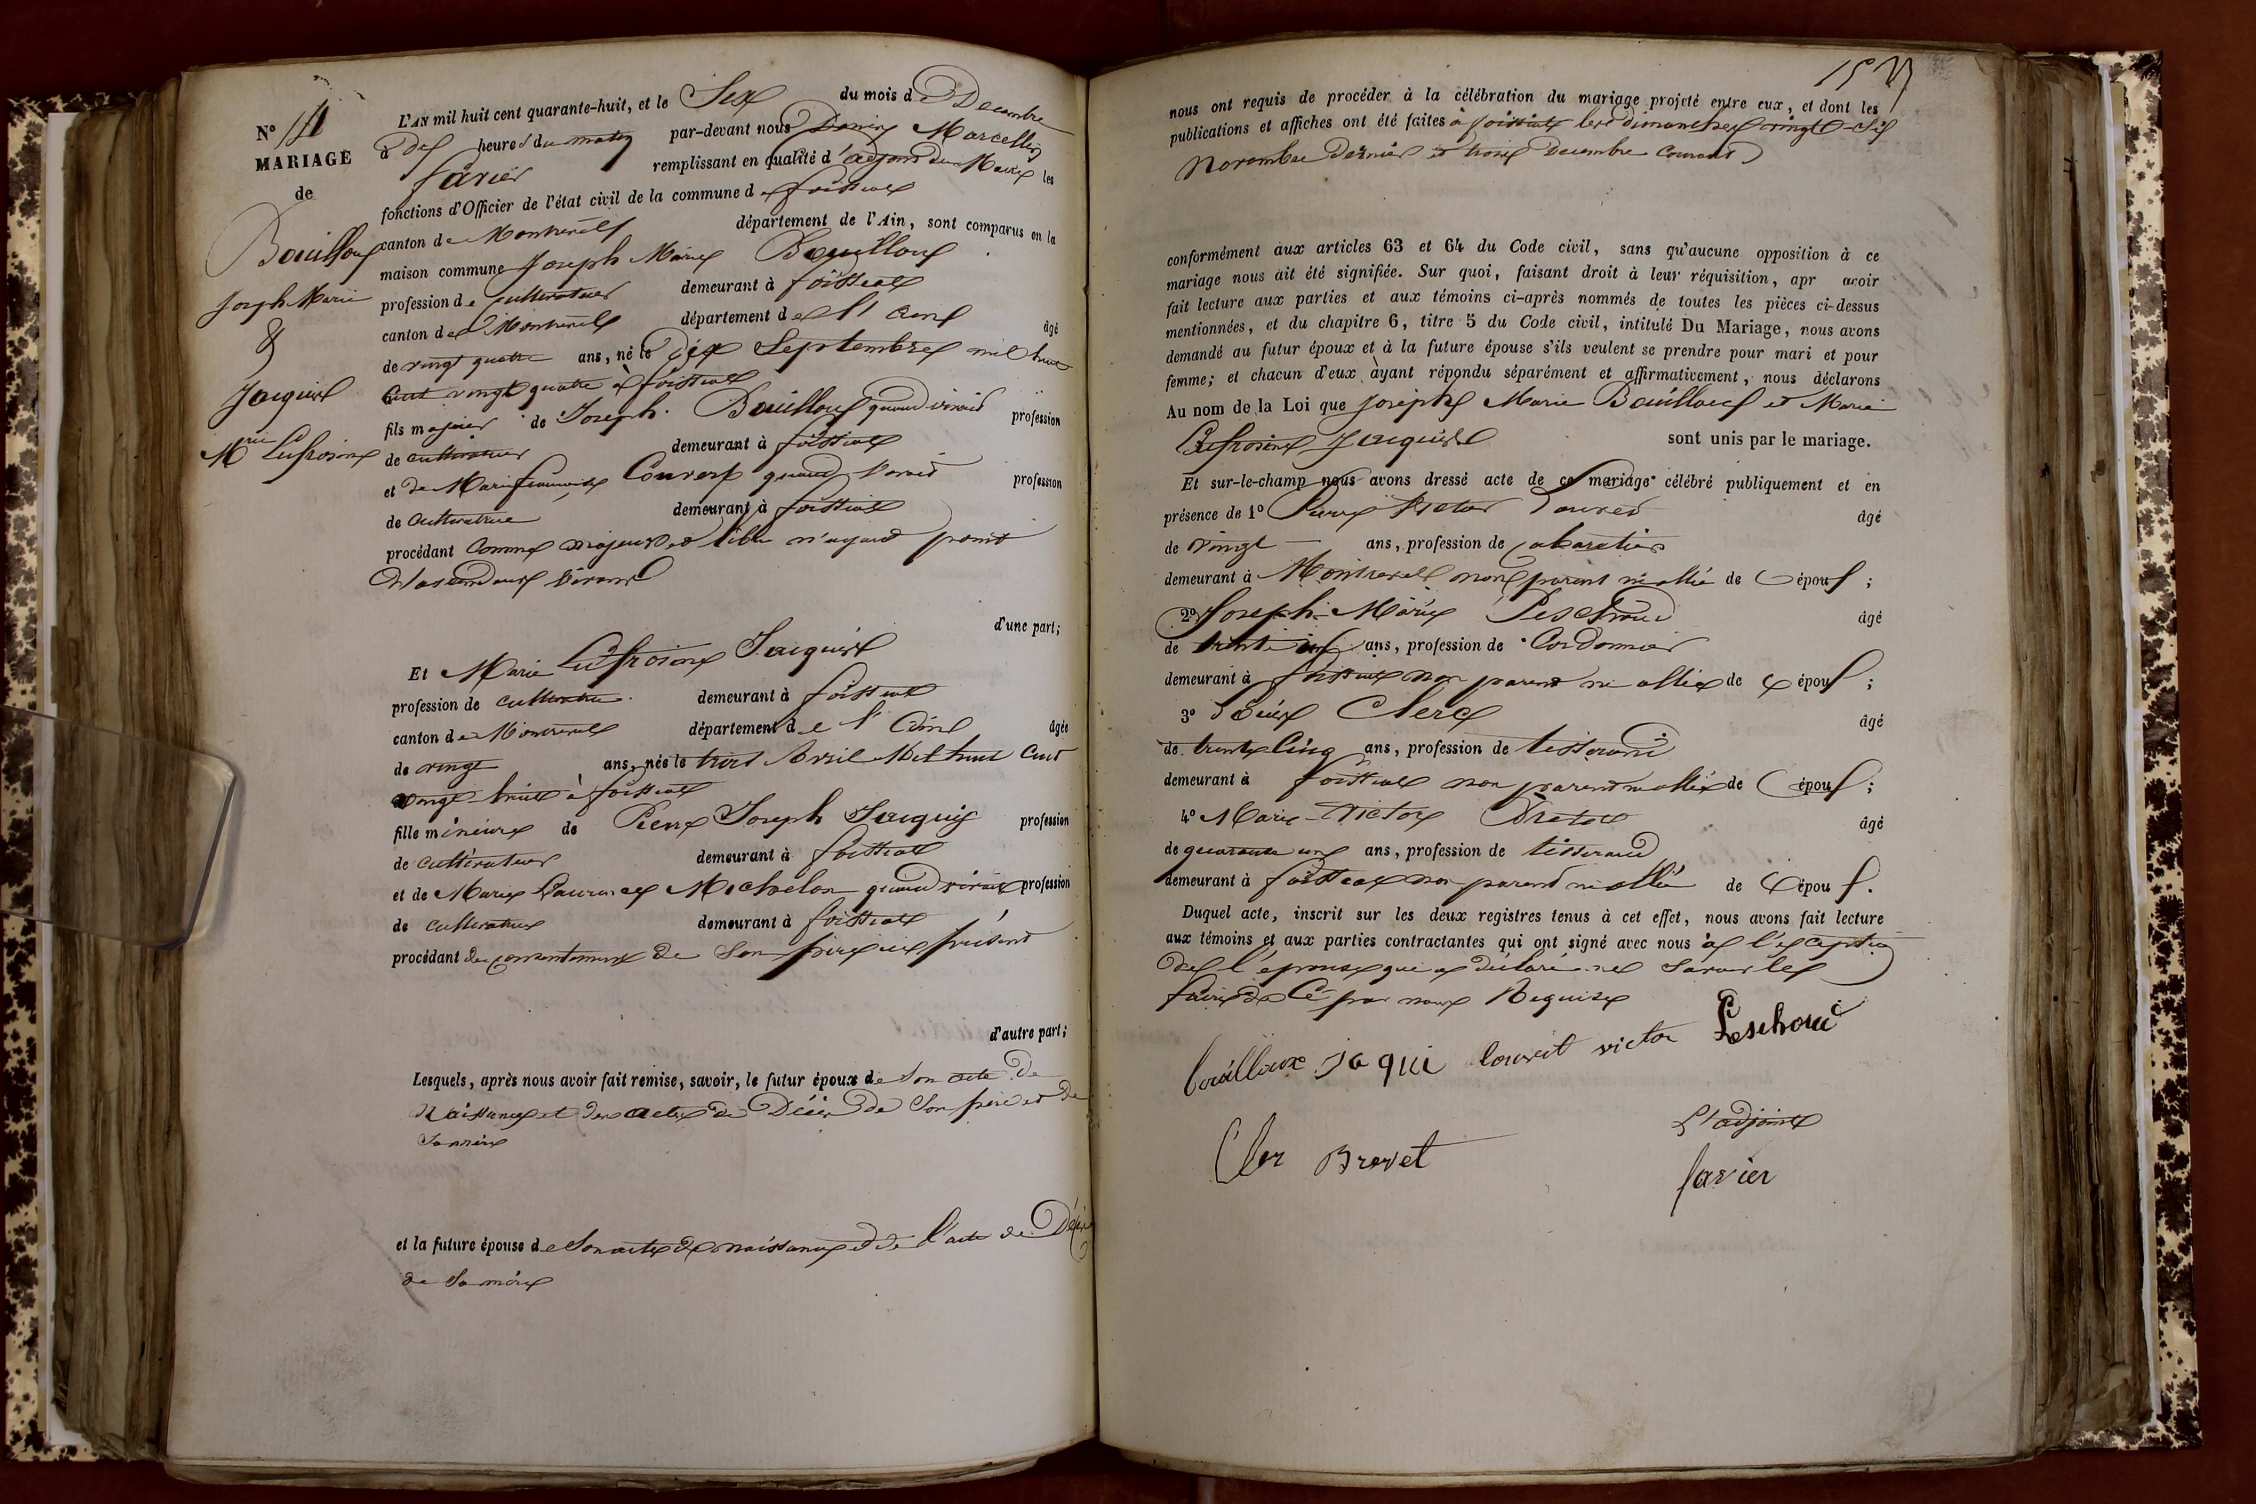 N° 14
MARIAGE
de
Bouilloux
Joseph Marie
&
Jacquis
Mie Eufrosine
L'AN mil huit cent quarante-huit, et le Six du mois de Décembre
à dix heures du matin par-devant nous Marcellin
favier remplissant en qualité d'adjoint du Maire les
fonctions d'Officier de l'état civil de la commune de foissiat
canton de Montrevel département de l'Ain, sont comparus en la
maison commune Joseph Marie Bouilloux
profession de cultivateur demeurant à foissiat
canton de Montrevel département de l'ain âgé
de vingt quatre ans, né le dix Septembre mil huit
cent vingt quatre à foissiat
fils majeur de Joseph Bouilloux quand vivait profession
de cultivateur demeurant à foissiat
et de Marie francoise Convert quand vivait profession
de cultivatrice demeurant à foissiat
procédant comme majeur et libre n'ayant point
d'ascendans vivant
d'une part;
Et Marie Eufrosine Jacquis
profession de cultivatrice demeurant à foissiat
canton de Montrevel département de l'Ain âgée
de vingt ans, née le trois Avril Mil huit Cent
vingt huit à foissiat
fille mineure de Pierre Joseph Jacquis profession
de cultivateur demeurant à foissiat
et de Marie Laurence Michelon quand vivait profession
de cultivatrice demeurant à foissiat
procédant du consentement de Son père ici présent
d'autre part;
Lesquels, après nous avoir fait remise, savoir, le futur époux de Son acte de
Naissance et des actes de Décès de Son père et de
Sa mère
et la future épouse de Son acte de naissance et de l'acte de Décès
de Sa mère
nous ont requis de procéder à la célébration du mariage projeté entre eux, et dont les
publications et affiches ont été faites à foissiat les dimanches vingt-six
Novembre dernier et trois Decembre courant
conformément aux articles 63 et 64 du Code civil, sans qu'aucune opposition à ce
mariage nous ait été signifiée. Sur quoi, faisant droit à leur réquisition, apr avoir
fait lecture aux parties et aux témoins ci-après nommés de toutes les pièces ci-dessus
mentionnées, et du chapitre 6, titre 5 du Code civil, intitulé Du Mariage, nous avons
demandé au futur époux et à la future épouse s'ils veulent se prendre pour mari et pour
femme; et chacun d'eux ayant répondu séparément et affirmativement, nous déclarons
Au nom de la Loi que Joseph Marie Bouilloux et Marie
Eufrosine Jacquis sont unis par le mariage.
Et sur-le-champ nous avons dressé acte de ce mariage célébré publiquement et en
présence de 1° Pierre Victor Louvet âgé
de vingt ans, profession de cabaretier
demeurant à Montrevel non parent ni allié de épou ;
2° Joseph Marie Peschoud âgé
de trente ans, profession de Cordonnier
demeurant à foissiat non parent ni allié de épou ;
3° Clerc âgé
de trente Cinq ans, profession de tisserand
demeurant à foissiat non parent ni allié de épou ;
4° Marie Victor âgé
de quarante un ans, profession de tisserand
demeurant à foissiat non parent ni allié de épou .
Duquel acte, inscrit sur les deux registres tenus à cet effet, nous avons fait lecture
aux témoins et aux parties contractantes qui ont signé avec nous à l'exception
de l'épouse qui a déclaré ne savoir le
faire de Ce par nous Requise
bouilloux jaqui louvet victor Peschoud
Cler Brevet
L'adjoint
favier